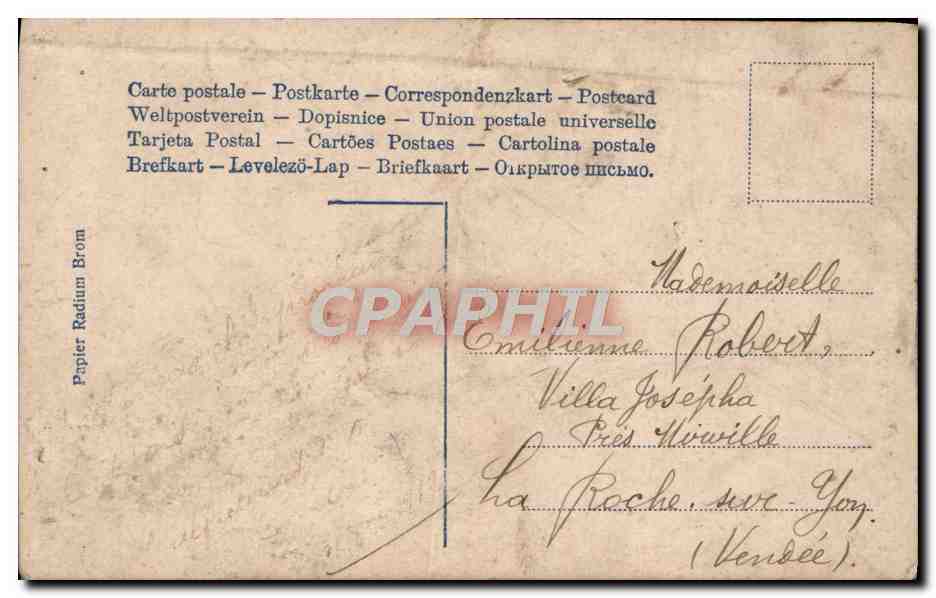 Carte postale — Postkarte — Correspondenzkart — Postcard
Weltpostverein — Dopisnice — Union postale universelle
Tarjeta Postal — Cartões Postaes — Cartolina postale
Brefkart — Levelezö-Lap — Briefkaart — Открытое письмо.
Papier Radium Brom
CPAPHIL
Mademoiselle
Emilienne Robert,
Villa Josépha
Près
La Roche-sur-Yon
(Vendée).